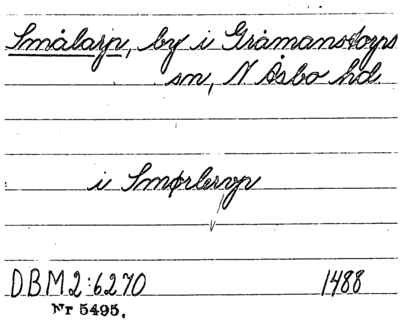 Smålarp, by i Gråmanstorps
sn, N Åsbo hd.
i Smørlervp
DBM2:6270 1488
Nr 5495.